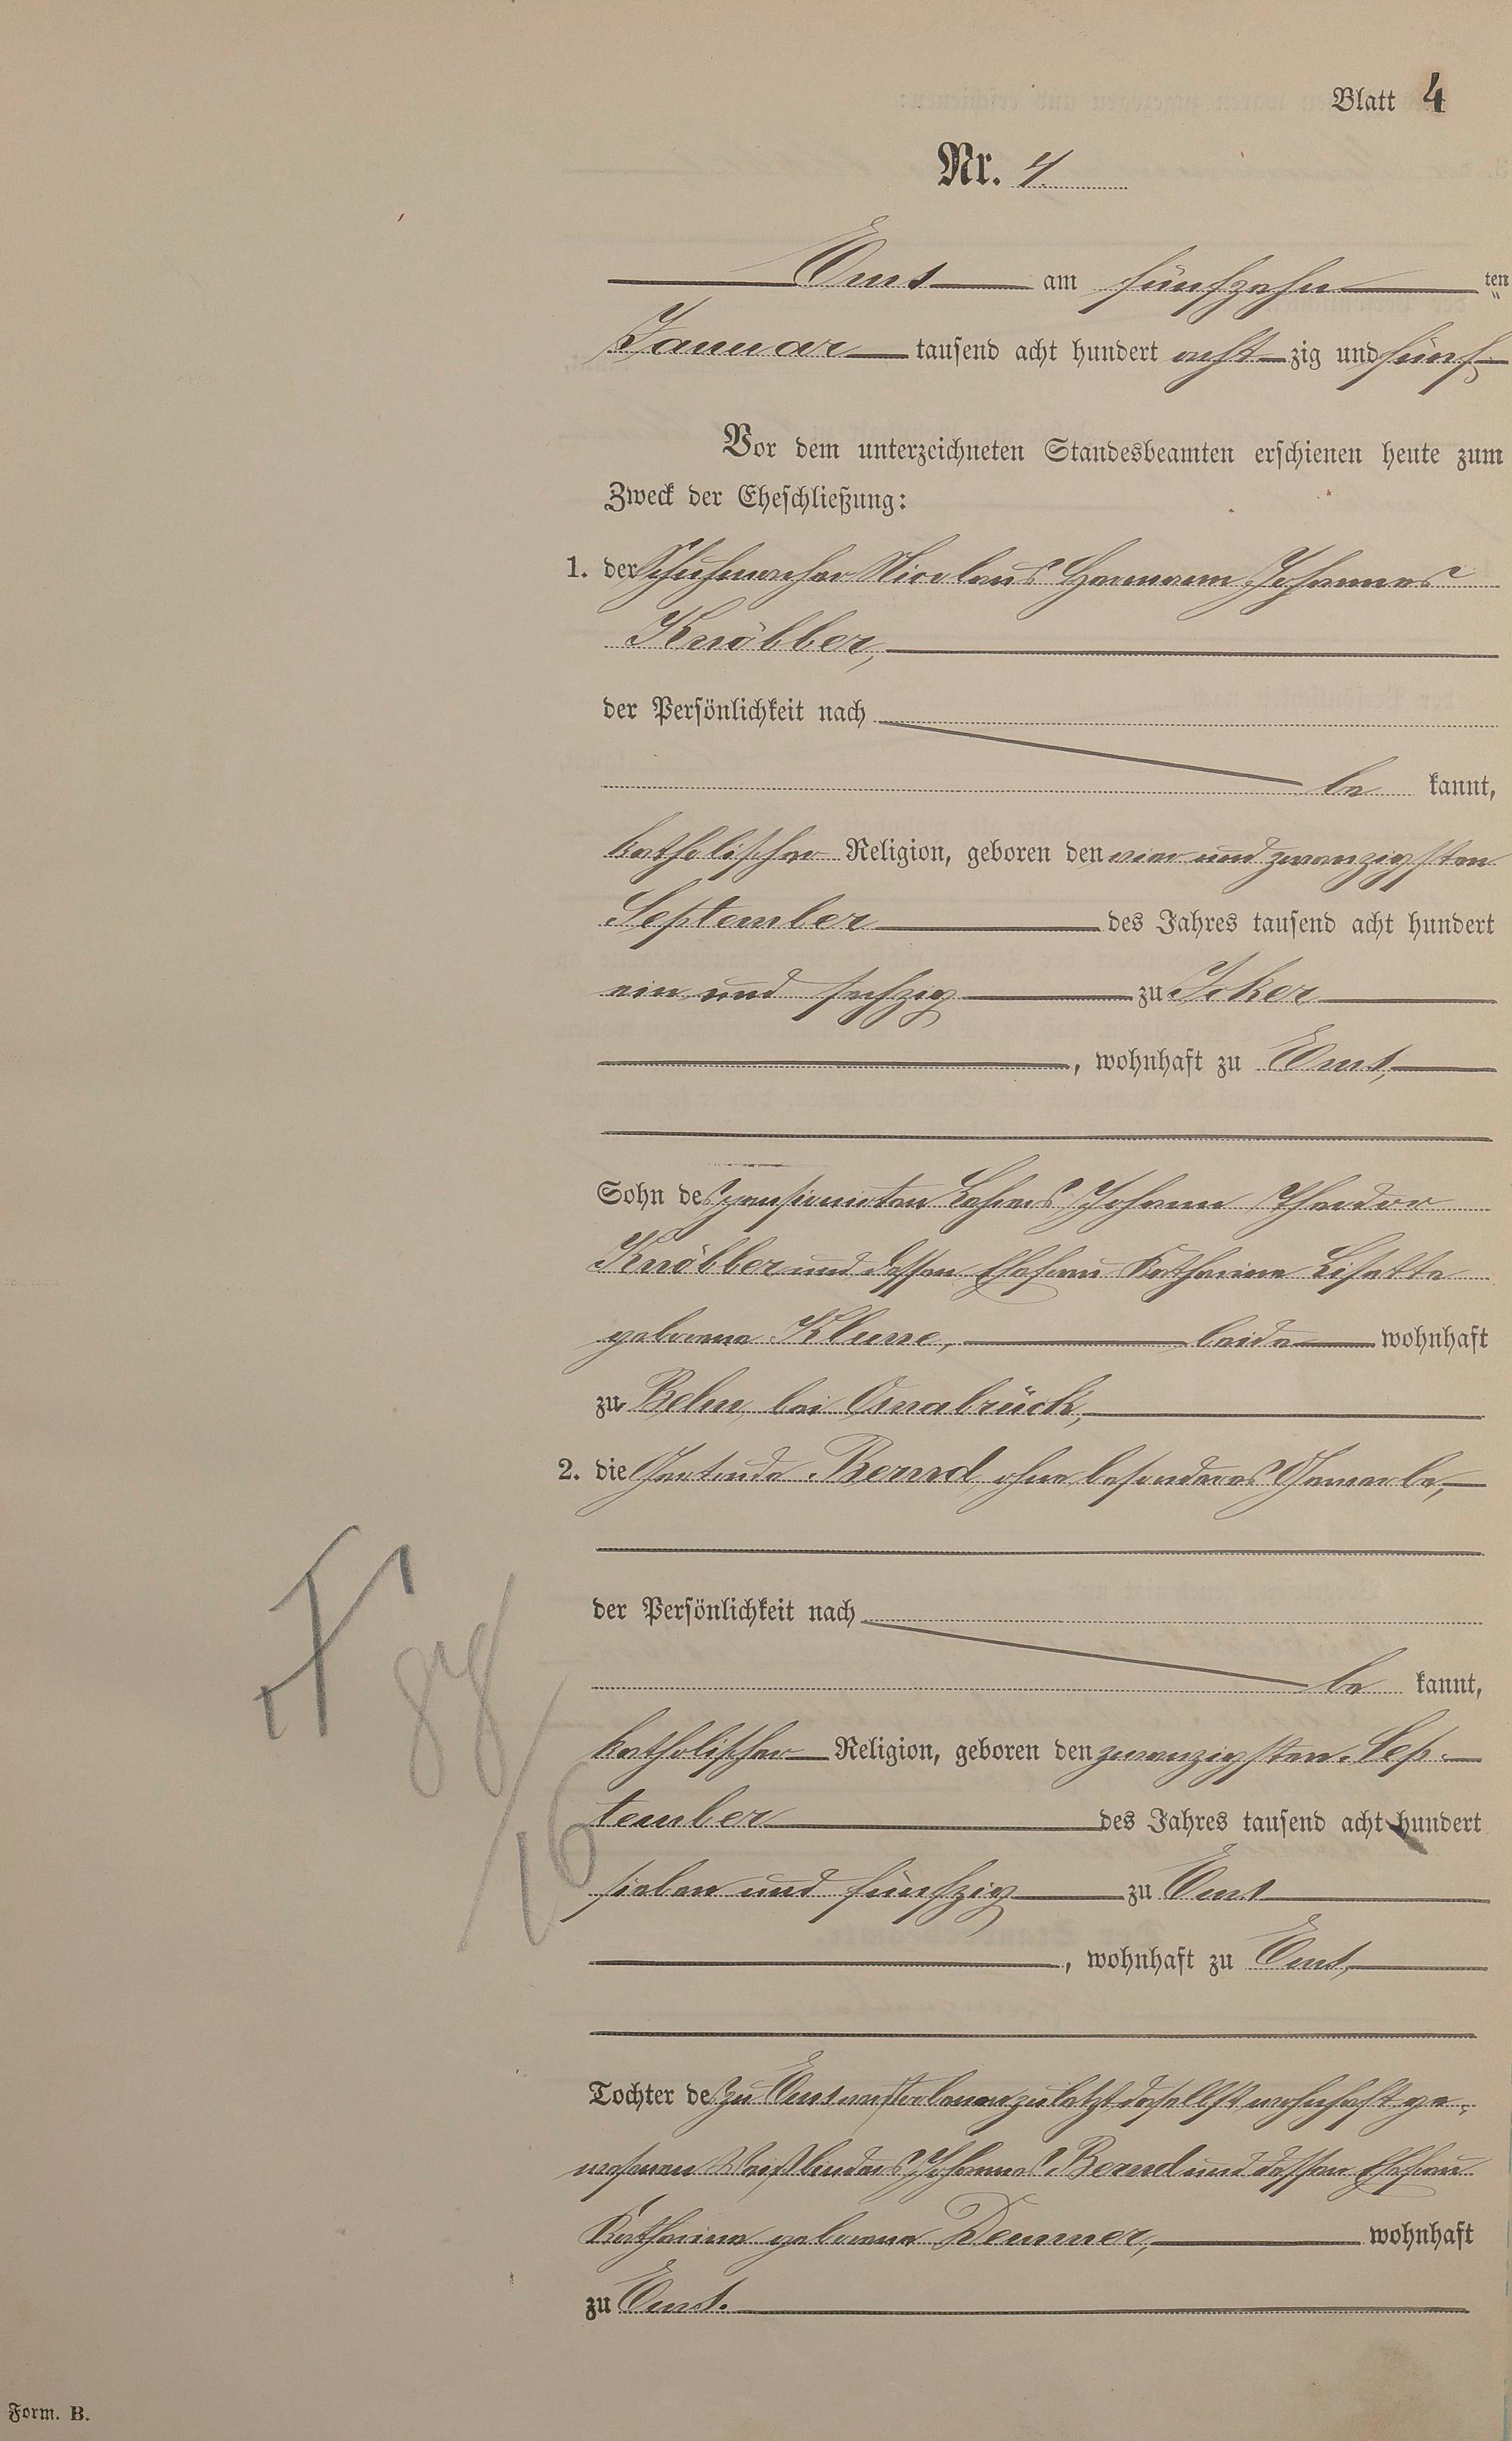 Blatt 4
Nr. 4.
Ems am fünfzehn ten
Januar tausend acht hundert acht zig und fünf
Vor dem unterzeichneten Standesbeamten erschienen heute zum
Zweck der Eheschließung:
1. der Schuhmacher Nicolaus Hermann Johannes
Knöbber,
der Persönlichkeit nach
be kannt,
katholischer Religion, geboren den vier und zwanzigsten
September des Jahres tausend acht hundert
ein und sechzig zu Icker
, wohnhaft zu Ems,
Sohn des pensionirten Lehrers Johann Theodor
Knöbber und dessen Ehefrau Katharina Lisette
geborene Klune, beide wohnhaft
zu Belm bei Osnabrück,
2. die Gertrude Bernd ohne besonderes Gewerbe,
der Persönlichkeit nach
be kannt,
katholischer Religion, geboren den zwanzigsten Sep-
tember des Jahres tausend acht hundert
sieben und fünfzig zu Ems
, wohnhaft zu Ems,
Tochter des zu Ems verstorbenen zuletzt daselbst wohnhaft ge-
wesenen Weißbinders Johannes Bernd und dessen Ehefrau
Katharina geborene Demmer, wohnhaft
zu Ems.
Form. B.